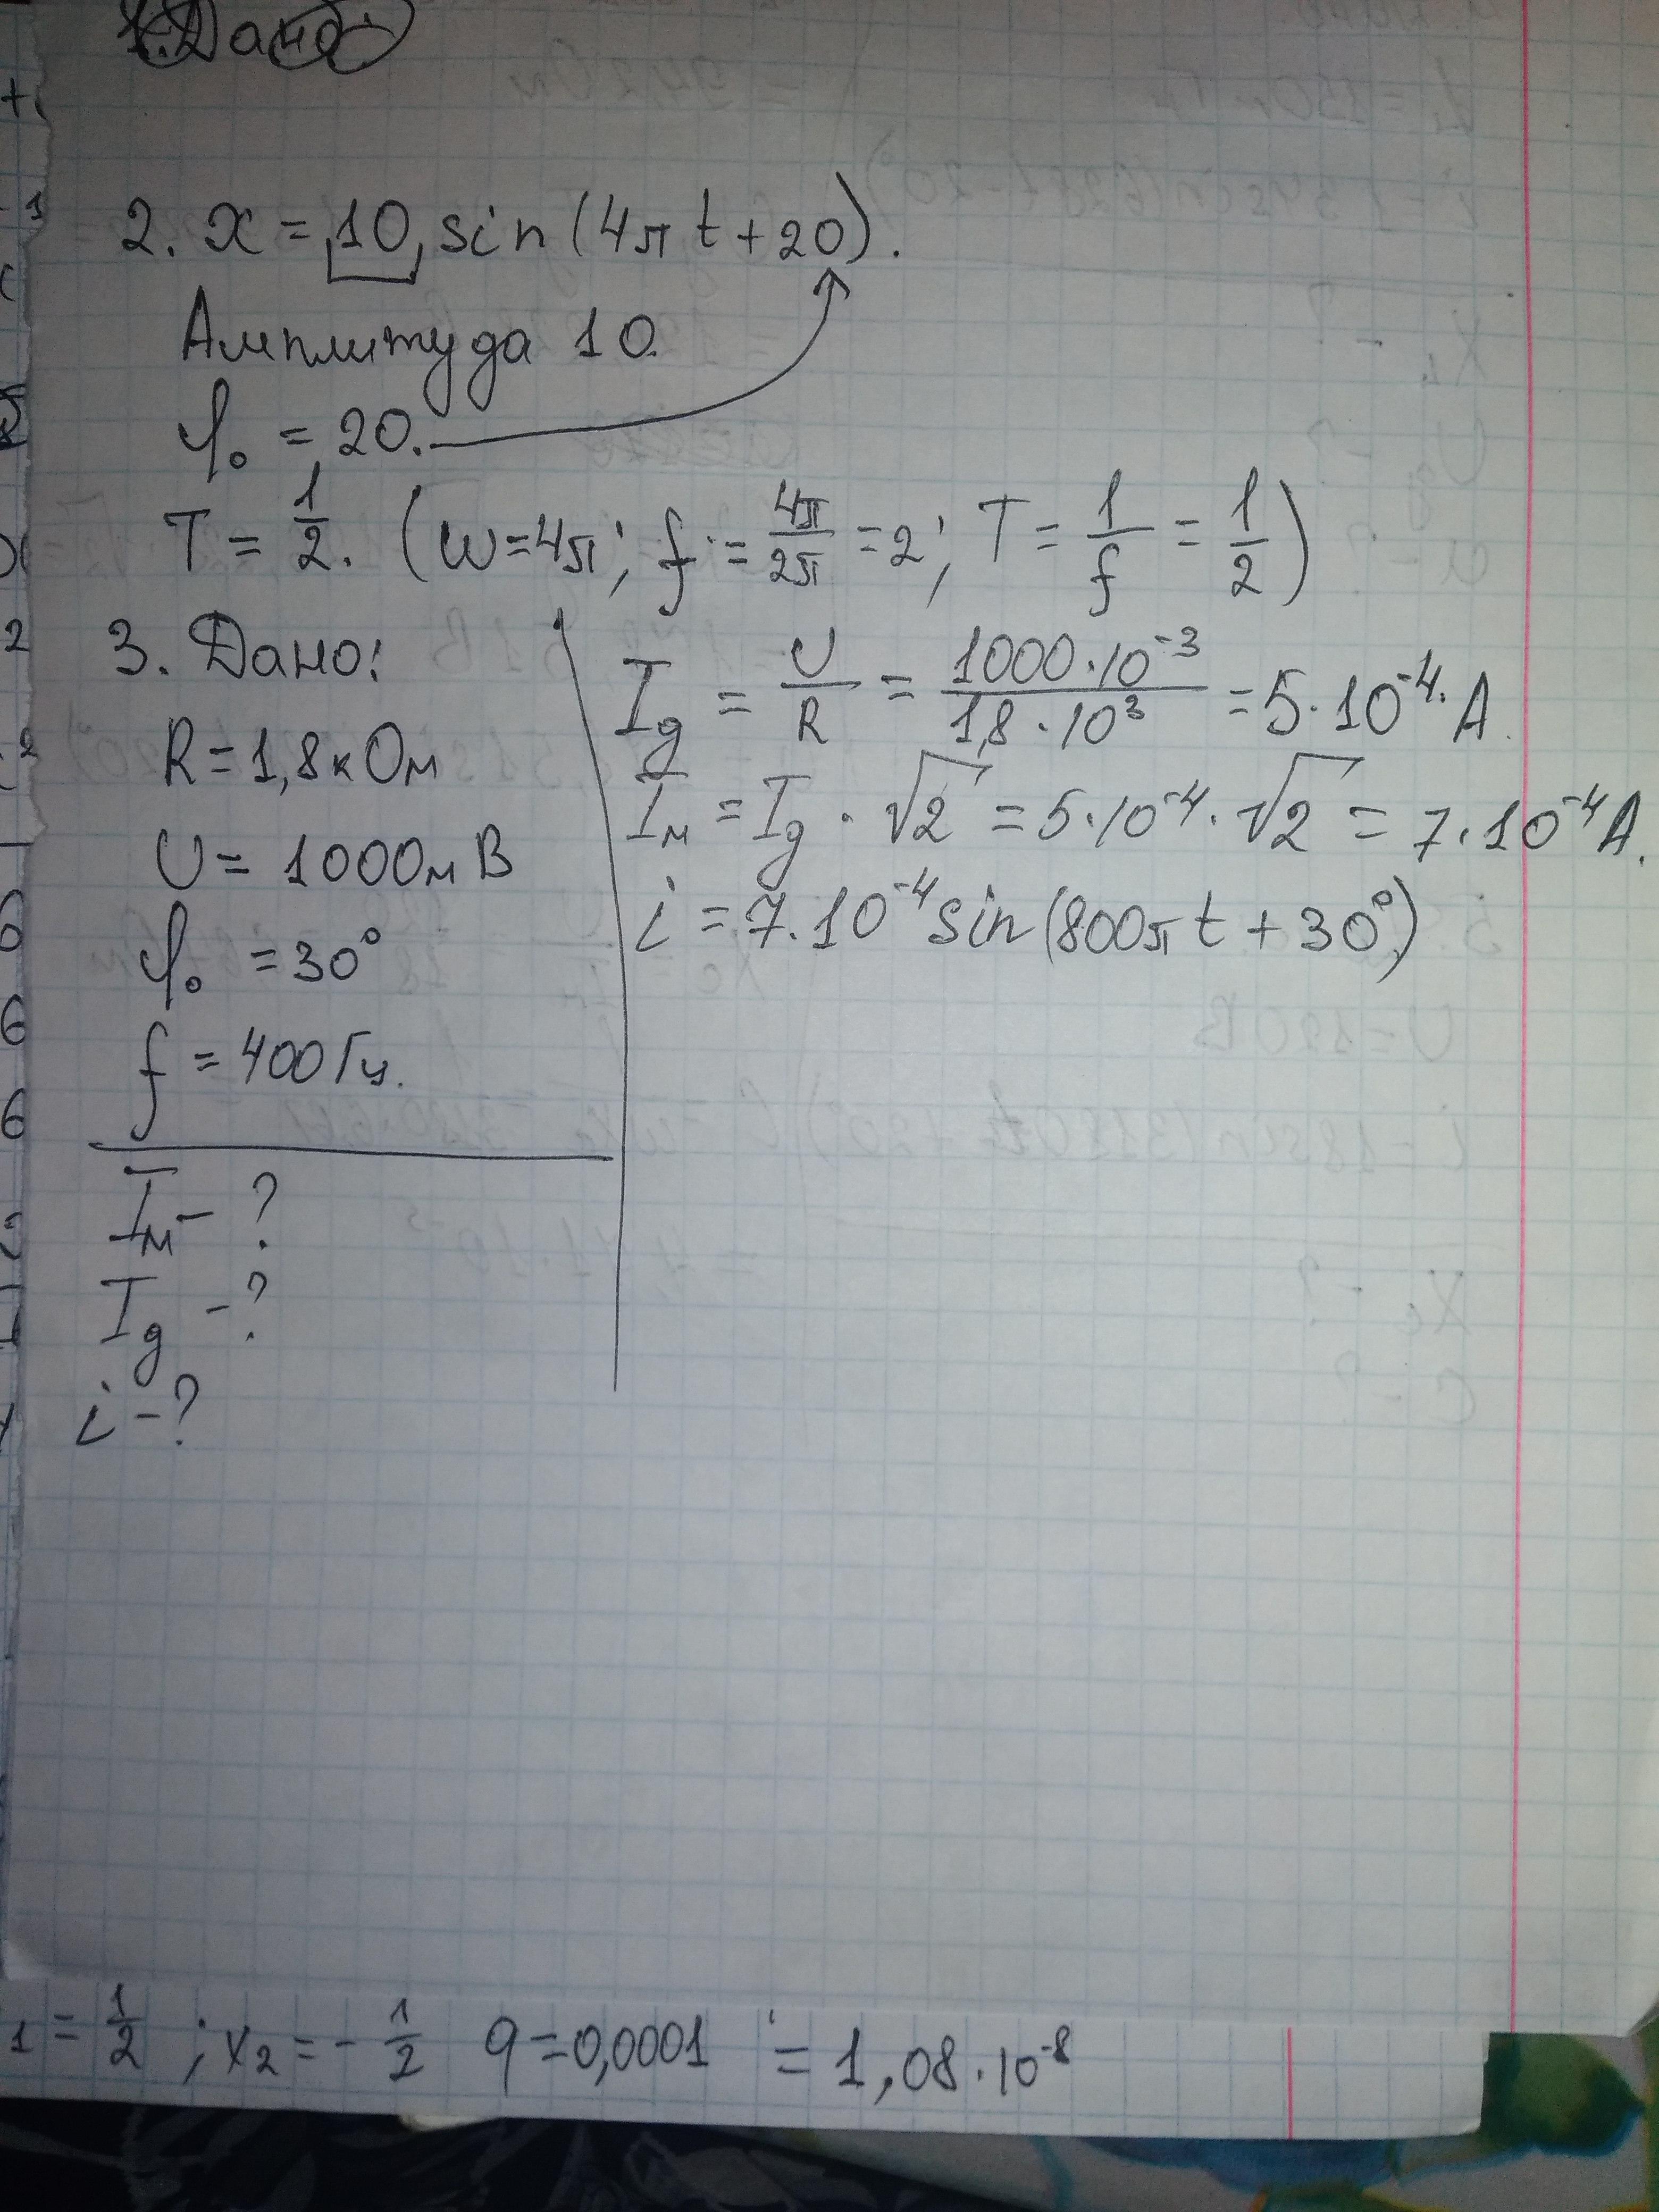 2. x = 10 sin(4π t + 20).
Амплитуда 10.
φ₀ = 20.
T = 1/2. (ω = 4π; f = 4π/2π = 2; T = 1/f = 1/2)
3. Дано:
R = 1,8 кОм
U = 1000 мВ
φ₀ = 30°
f = 400 Гц.
Iм - ?
Iд - ?
i - ?
Iд = U/R = 1000·10⁻³/1,8·10³ = 5·10⁻⁴ А.
Iм = Iд · √2 = 5·10⁻⁴ · √2 = 7·10⁻⁴ А.
i = 7·10⁻⁴ sin(800π t + 30°)
1 = 1/2 ; x₂ = - 1/2 q = 0,0001 = 1,08·10⁻⁸